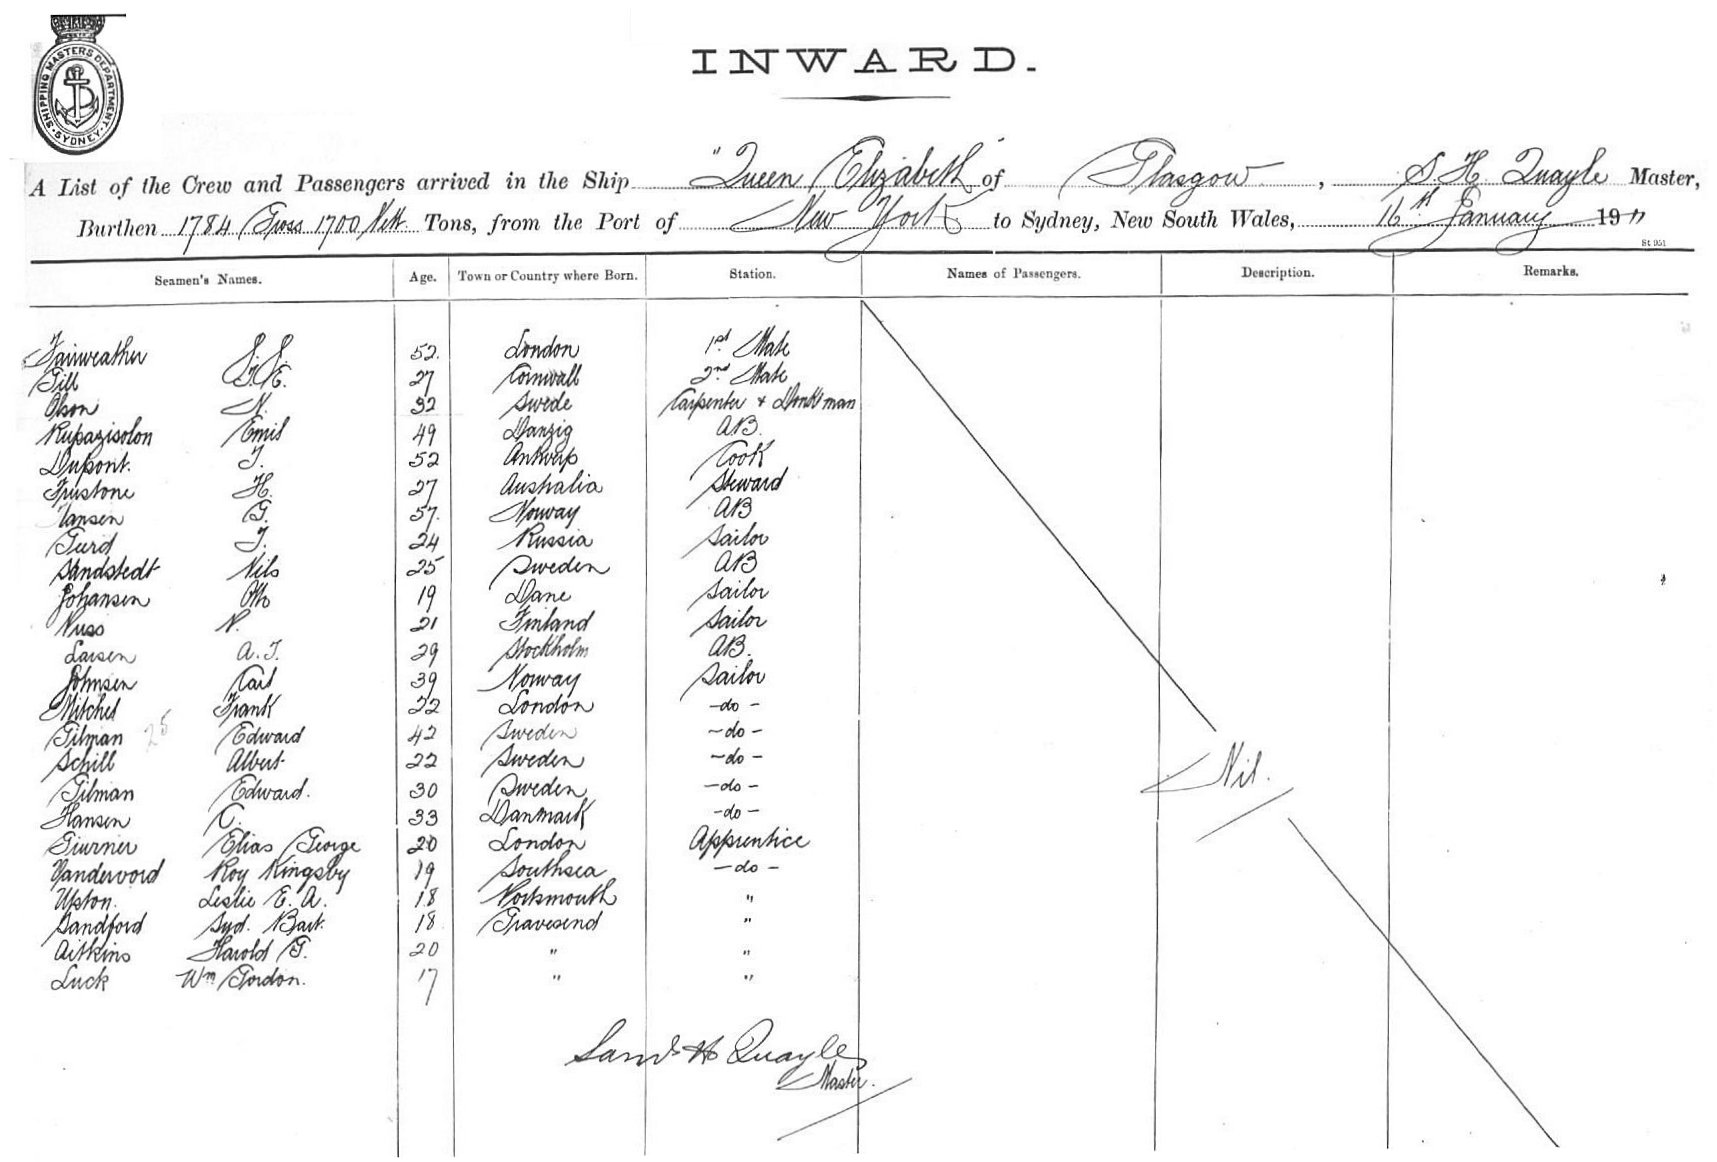 SHIPPING MASTERS DEPARTMENT. SYDNEY.
INWARD.
A List of the Crew and Passengers arrived in the Ship "Queen Elizabeth" of Glasgow, S. H. Quayle Master,
Burthen 1784 Gross 1700 Nett Tons, from the Port of New York to Sydney, New South Wales, 16th January 1911
St 951
Seamen's Names. Age. Town or Country where Born. Station. Names of Passengers. Description. Remarks.
Fairweather S. S. 52. London 1st Mate
Gill T. E. 27 Cornwall 2nd Mate
Olson N. 32 Swede Carpenter + Donk'man
Rupazisolon Emil 49 Danzig AB.
Dupont. J. 52 Antwerp Cook
Frustone H. 27 Australia Steward
Hansen G. 57. Norway AB
Gurd J. 24 Russia Sailor
Sandstedt Nils 25 Sweden AB
Johansen Otto 19 Dane Sailor
Nuss N. 21 Finland Sailor
Larsen A. J. 29 Stockholm AB.
Johnsen Carl 39 Norway Sailor
Mitchel Frank 22 London -do-
Gilman 25 Edward 42 Sweden -do-
Schill Albert 22 Sweden -do-
Gilman Edward. 30 Sweden -do-
Nil.
Hansen C. 33 Danmark -do-
Giurner Elias George 20 London Apprentice
Vandervord Roy Kingsby 19 Southsea -do-
Upton. Leslie E. A. 18 Portsmouth "
Sandford Syd. Bart. 18 Gravesend "
Aitkins Harold G. 20 " "
Luck Wm Gordon. 17 " "
Saml H Quayle
Master.